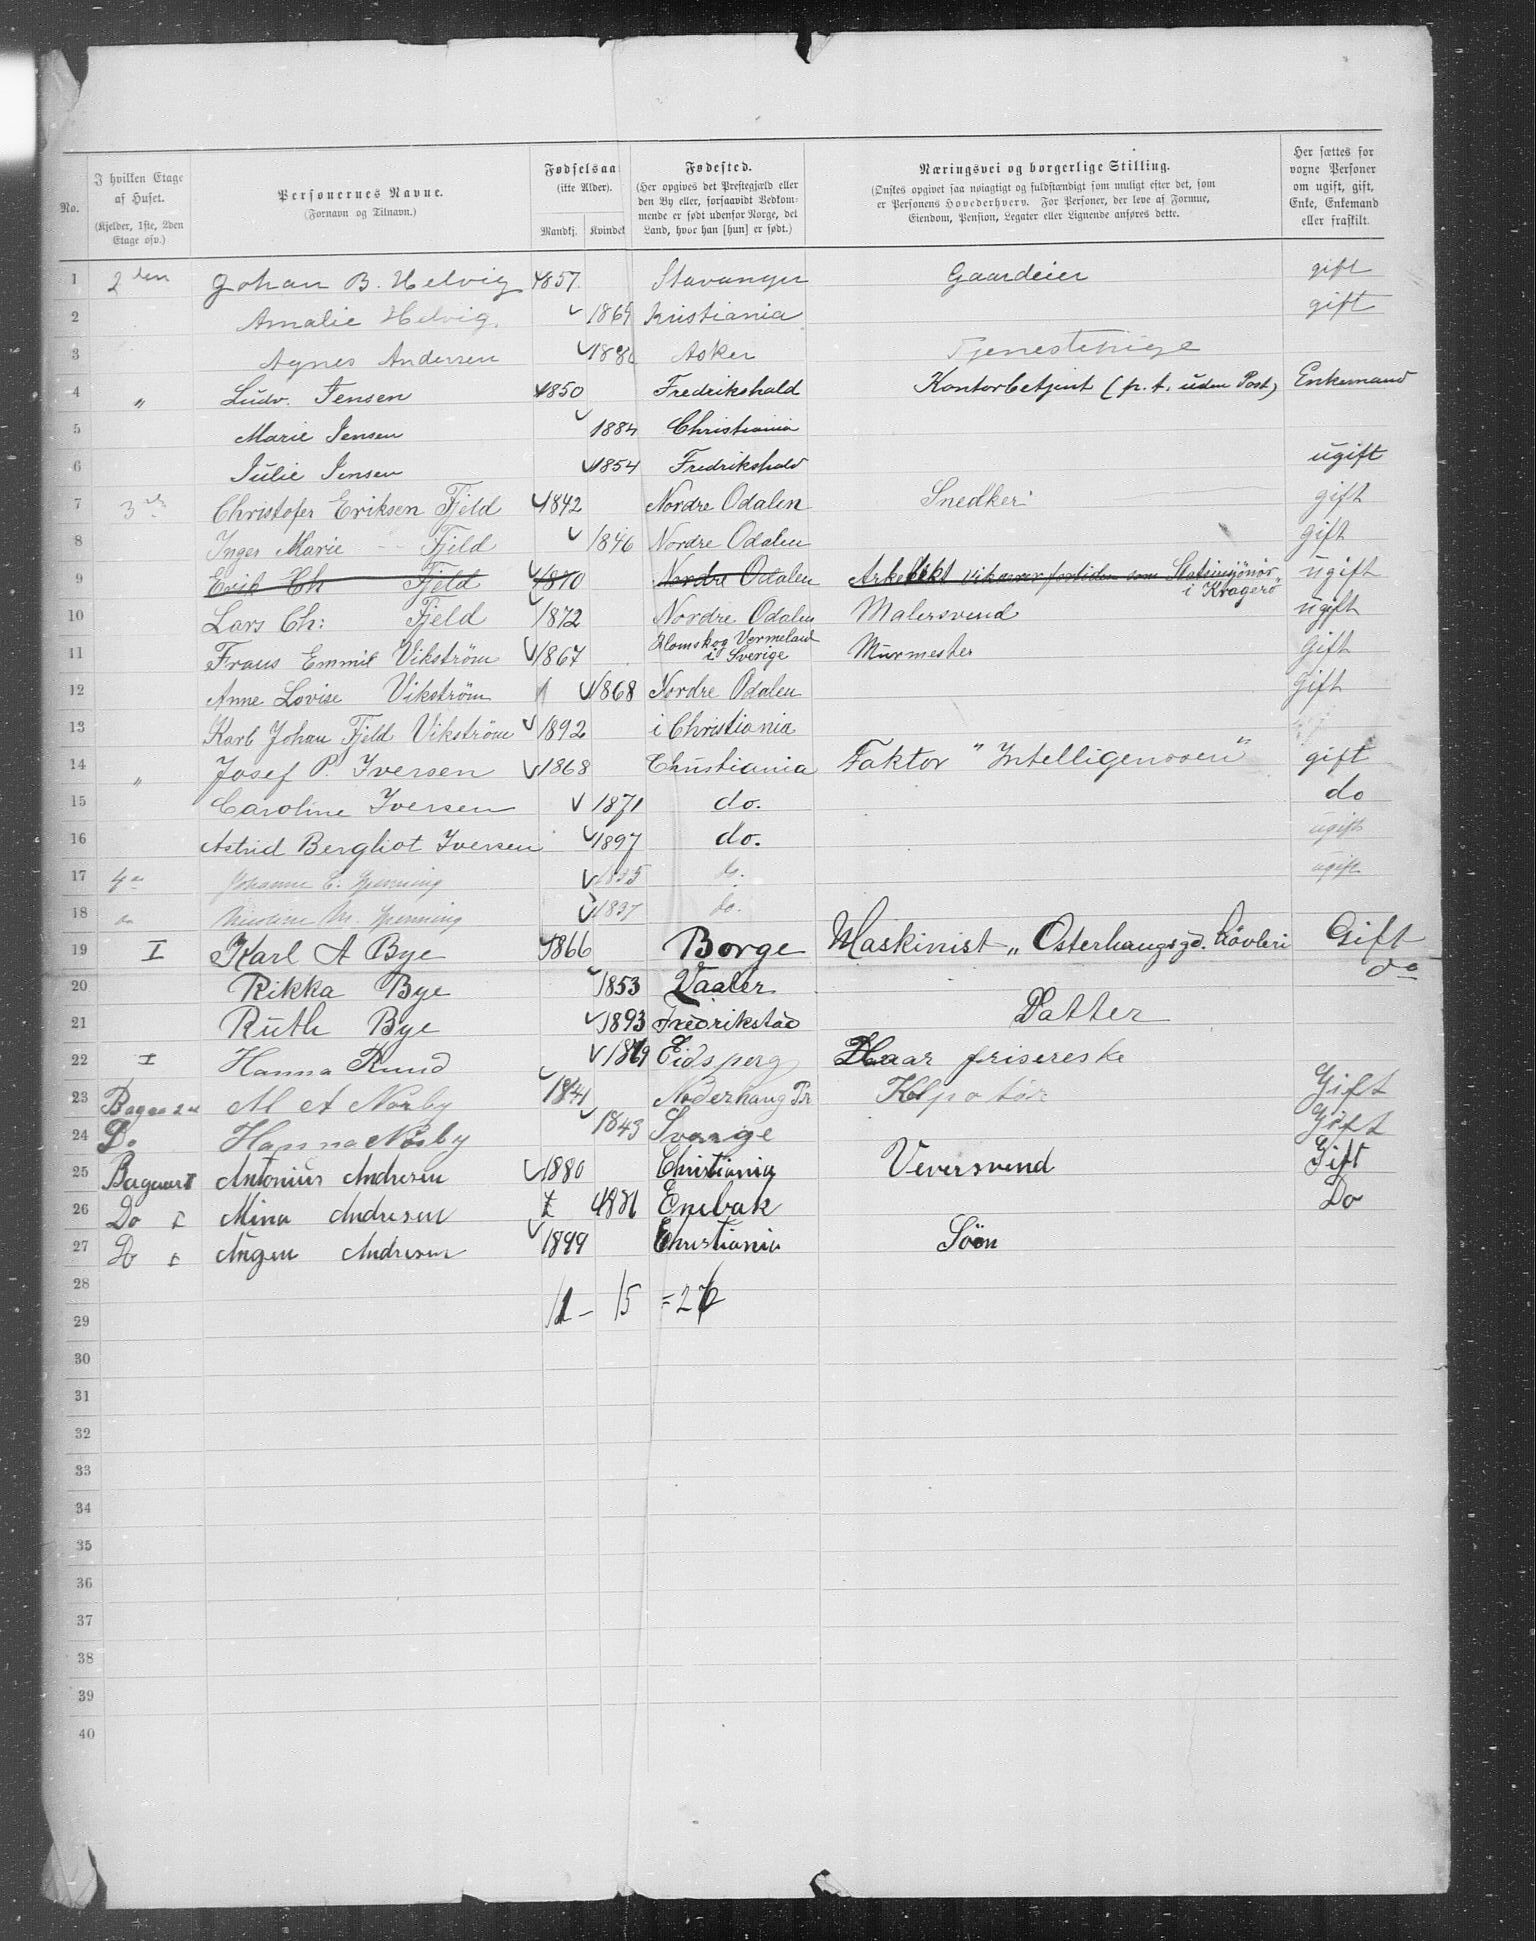 No.
I hvilken Etage af Huset. (Kjelder, 1ste, 2den Etage osv.)
Personernes Navne. (Fornavn og Tilnavn.)
Fødselsaar (ikke Alder). Mandkj. Kvindek
Fødested. (Her opgives det Prestegjæld eller den By eller, forsaavidt Vedkommende er født udenfor Norge, det Land, hvor han [hun] er født.)
Næringsvei og borgerlige Stilling. (Ønskes opgivet saa nøiagtigt og fuldstændigt som muligt efter det, som er Personens Hovederhverv. For Personer, der leve af Formue, Eiendom, Pension, Legater eller Lignende anføres dette.)
Her sættes for voxne Personer om ugift, gift, Enke, Enkemand eller fraskilt.
1 2den Johan B. Helvig 1857 Stavanger Gaardeier gift
2 Amalie Helvig 1869 Kristiania gift
3 Agnes Andersen Asker Tjenestepige
4 " Ludv. Jensen 1850 Fredrikshald Kontorbetjent (p.t. uden Post) Enkemand
5 Marie Jensen 1884 Christiania
6 Julie Jensen 1854 Fredrikshald ugift
7 3die Christofer Eriksen Fjeld 1842 Nordre Odalen Snedker gift
8 Inger Marie - - Fjeld 1846 Nordre Odalen Gift
9 Erik Ch Fjeld 1870 Nordre Odalen Arkitekt vikarer fortiden som Statsinsjönör i Kragerö ugift
10 Lars Ch: Fjeld 1872 Nordre Odalen Malersvend ugift
11 Frans Emmil Vikström 1867 Blomskog Vermeland i Sverige Murmester Gift
12 Anne Lovise Vikström 1868 Nordre Odalen Gift
13 Karl Johan Fjeld Vikström 1892 i Christiania
14 " Josef P. Iversen 1868 Christiania Faktor "Intelligenssen" gift
15 Caroline Iversen 1871 do. do
16 Astrid Bergliot Iversen 1897 do. ugift
17 4de Johanne C. do. ugift
18 do M. 1837 do.
19 I Karl A Bye 1866 Borge Maskinist „ Osterhaugsgd. Hövleri Gift
20 Rikka Bye 1853 Vaaler do
21 Ruth Bye 1893 Fredrikstad Datter
22 I Hanna Rund 1869 Eidsperg Haar frisereske
23 M A Nørby 1841 Noderhaug Pr Kolpotör Gift
24 Do Hanna Nörby 1843 Sverige Gift
25 Antonius Andresen 1880 Christiania Veversvend Gift
26 Do I Mina Andresen Enebak Do
27 Do I Andresen 1899 Christiania Söon
28
29 11 - 15 = 26
30
31
32
33
34
35
36
37
38
39
40